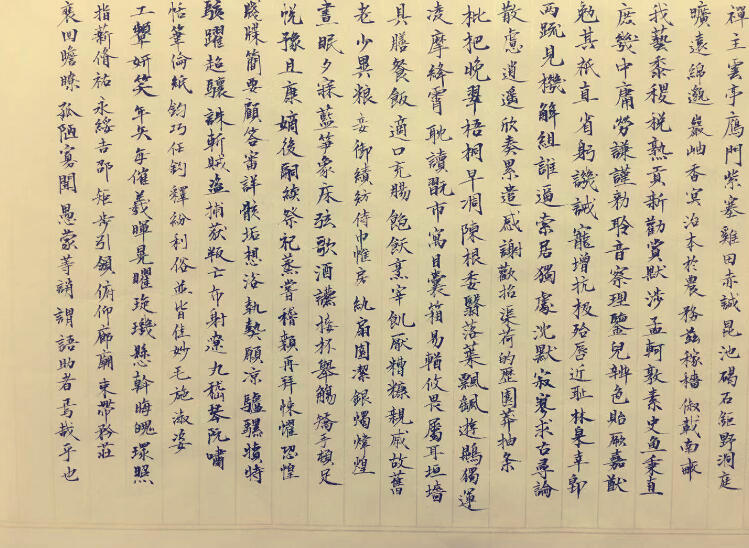 禪主雲亭鴈門紫塞雞田赤誠昆池碣石鉅野洞庭
曠遠綿邈巖岫杳冥治本於農務茲稼穡俶載南畝
我藝黍稷稅熟貢新勸賞黜陟孟軻敦素史魚秉直
庶幾中庸勞謙謹勑聆音察理鑒皃辨色貽厥嘉猷
勉其祇直省躬譏誡寵增抗极殆辱近恥林皋幸即
兩疏見機解組誰逼索居獨處沈默寂寥求古尋論
散慮逍遙欣奏累遣慼謝歡招渠荷的歷園莽抽条
枇杷晚翠梧桐早凋陳根委翳落葉飄颻遊鵾獨運
凌摩絳霄耽讀翫市寓目囊箱易輶攸畏屬耳垣墻
具膳餐飯適口充腸飽飫烹宰飢厭糟糠親戚故舊
老少異粮妾御績紡侍巾帷房紈扇圓潔銀燭煒煌
晝眠夕寐藍筍象床弦歌酒讌接杯舉觴矯手頓足
悅豫且康嫡後嗣續祭祀蒸嘗稽顙再拜悚懼恐惶
牋牒簡要顧答審詳骸垢想浴執熱願凉驢騾犢特
駭躍超驤誅斬賊盜捕獲叛亡布射遼丸嵇琴阮嘯
恬筆倫紙鈞巧任釣釋紛利俗並皆佳妙毛施淑姿
工顰妍笑年矢每催羲暉晃曜璇璣懸斡晦魄環照
指薪脩祐永綏吉邵矩步引領俯仰廊廟束帶矜莊
裵回瞻眺孤陋寡聞愚蒙等誚謂語助者焉哉乎也